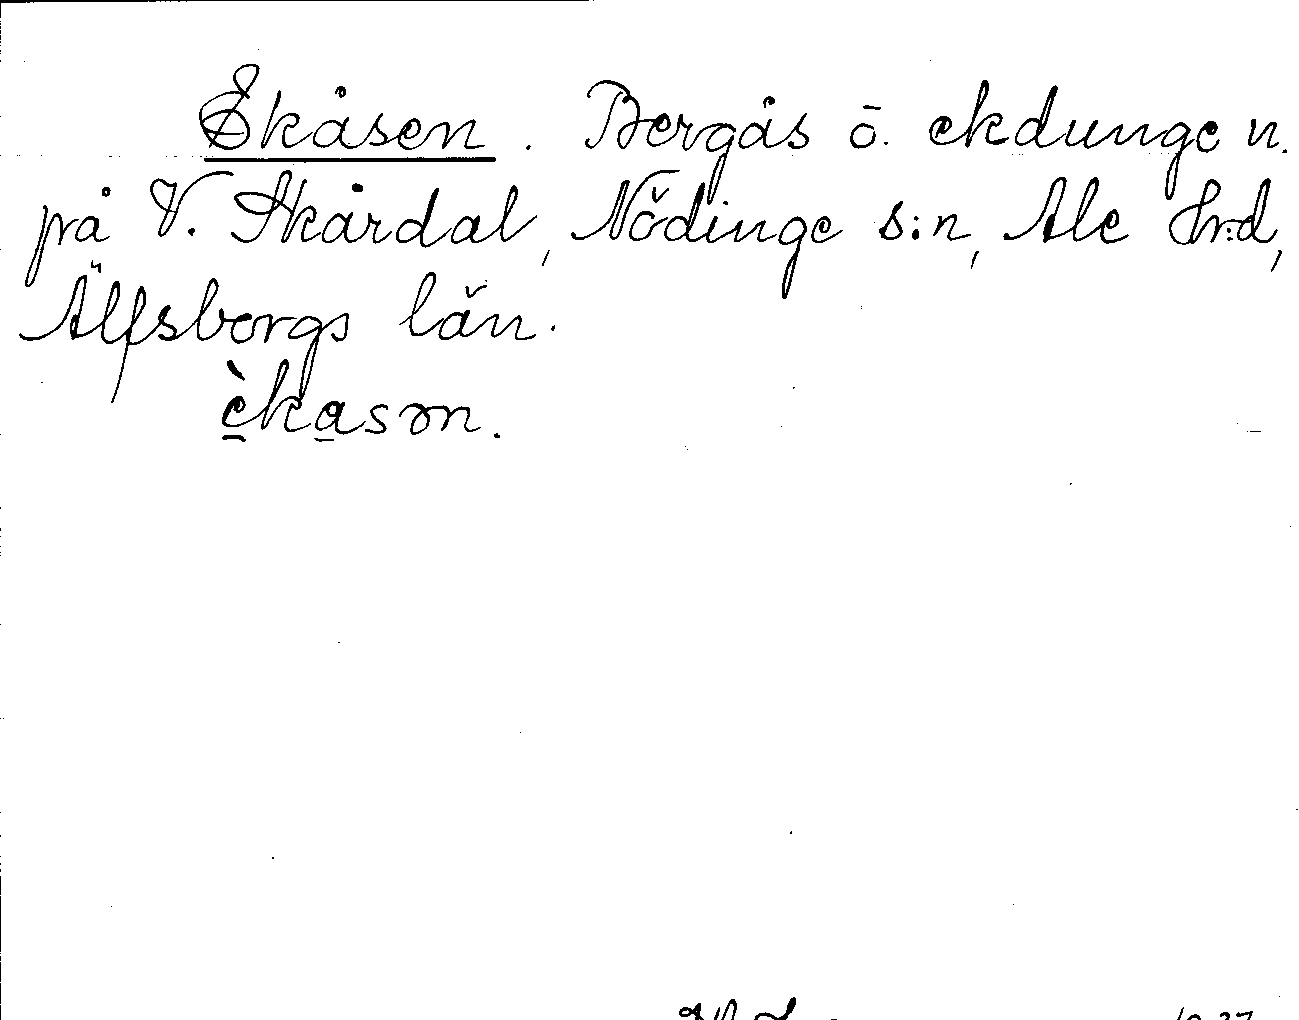 Ekåsen. Bergås o. ekdunge n.
på V. Skårdal, Nödinge s:n, Ale hrd,
Älfsborgs län.
èkasən.